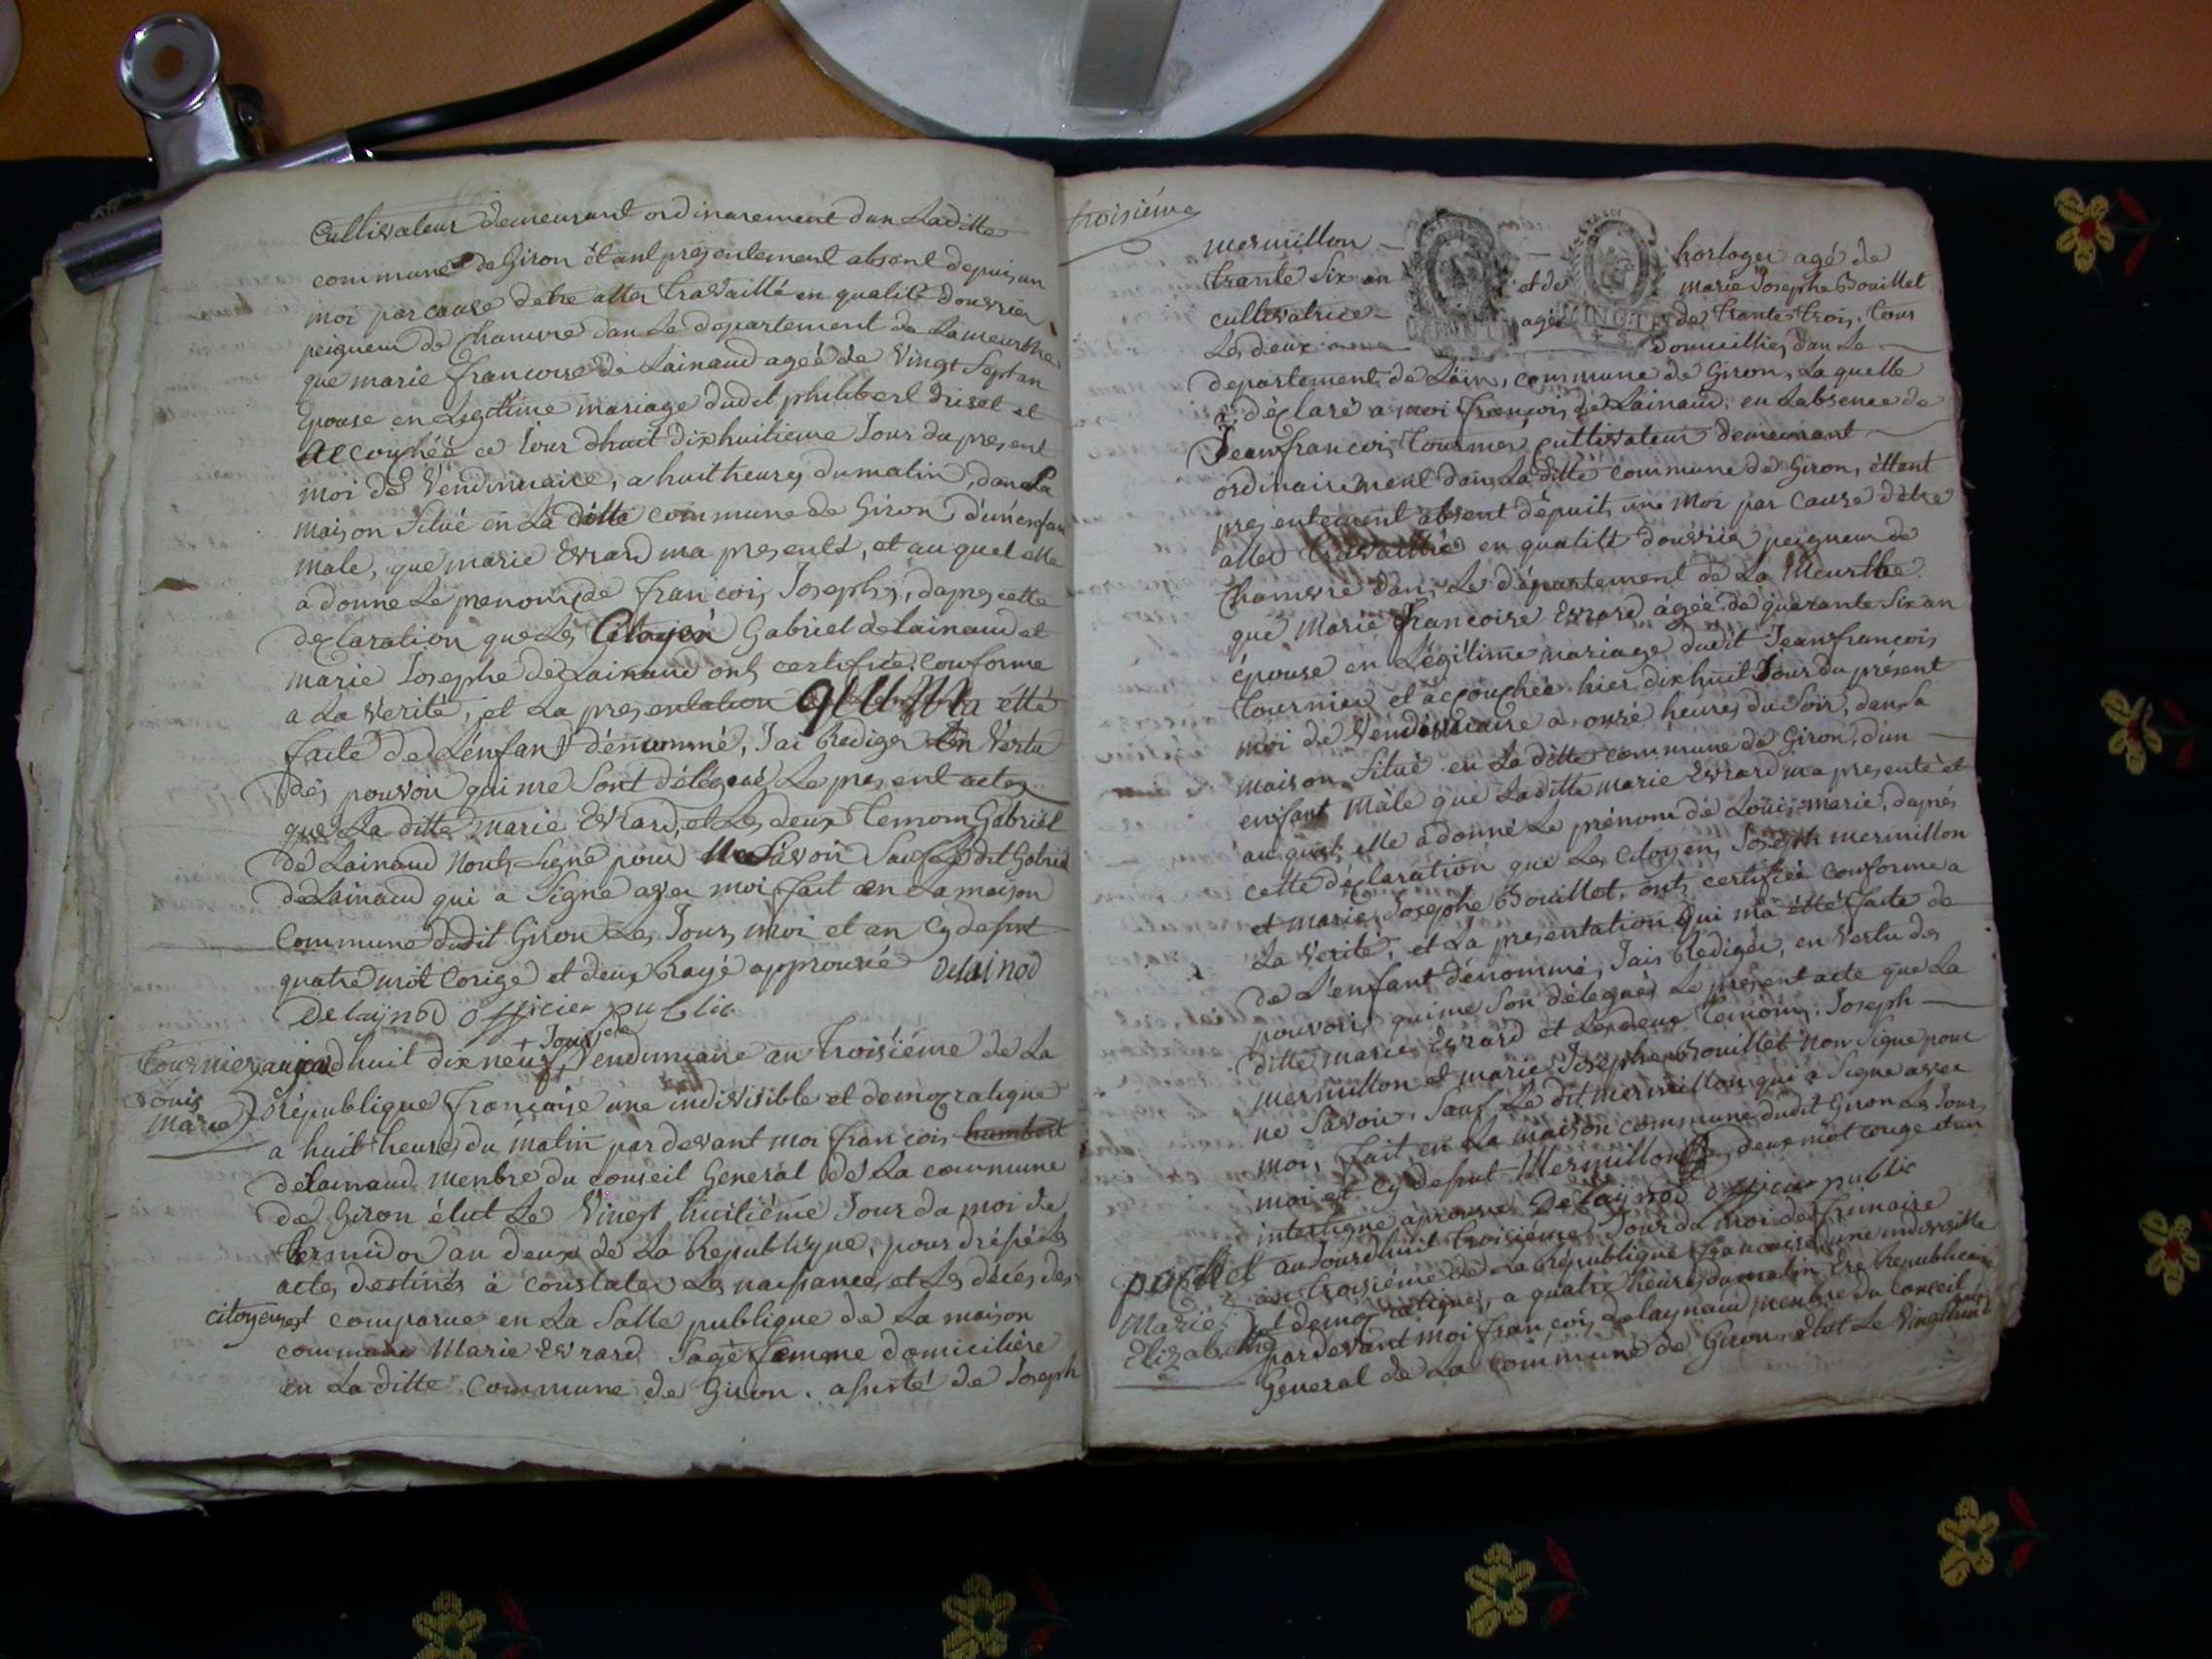 Cultivateur demeurant ordinairement dan Laditte
commune de Giron étant présentement absent depuis un
moi par cause detre aller travaillé en qualité douvrier
peigneur de chanvre dan Le departement de Lameurthe
que marie francoise de Lainaud agéé de Vingt Sept an
Epouse en Legitime mariage dudit philibert et
accouchéé ce Jour dhuit dixhuitieme Jour du present
moi de Vendimiaire, a huit heures du matin, dans La
maison Situé en La ditte commune de Giron, d'un enfan
male, que marie Evrard ma presenté, et au quel elle
a donne Le prenom de francois Joseph, dapres cette
declaration que Les Citoyen Gabriel delainaud et
marie Josephe de Lainaud ont certifiée Conforme
a La verité, et La presentation qui Ma etté
faite de Lénfant dénommé, Jai Rediger En Vertu
dés pouvoir qui me Sont délégué Le present acte
que La ditte marie Evrard, et Les deux temom Gabriel
de Lainaud nont Signé pour ne Savoir Sauf Le dit Gabriel
deLainaud qui a Signe avec moi fait en La maison
Commune dudit Giron Les Jour, moi et an Cy desut
quatre mot Corigé et deux Rayé approuvé delainod
Delaynod officier public
Tournier Louis Marie
aujourdhuit dix neuf Jour de Vendimiaire an troisiéme de La
République françoise une indivisible et democratique
a huit heures du matin par devant moi francois humbert
delainaud menbre du conseil General de La commune
de Giron élut Le Vinegt huitiéme Jour du moi de
termidor an deux de La Republique, pour drésé Les
actes destinés à constater Les naissances et Les décés des
citoyens est comparue en La Salle publique de La maison
commune Marie Evrard Sage femme domiciliére
en La ditte Commune de Giron. assisté de Joseph
troisiéme
mermillon horloger agé de
trante Six an et de marie Josephe Bouillet
cultivatrice agé de trante trois, tous
Les deux domiciliés dan Le
MINUTE
departement de Lain, commune de Giron, La quelle
a déclaré a moi françois de Lainaud, en Labsence de
Jean francois Tournier cultivateur demeurant
ordinairement dans La ditte commune de Giron, éttent
presentement absent dépuit un moi par cause dètre
aller travaillié en qualité douvrier peigneur de
Chanvre dans Le département de La Meurthe
que Marie francoise Evrard âgéé de quarante Six an
épouse en Légitime mariage dudit Jean francois
tournier, et accouchée hier dix huit Jour du présent
moi de Vendimiaire a onzé heures du Soir, dans La
maison Situé en La ditte commune de Giron, d'un
enfant Mâle que Laditte marie Evrard ma presenté et
au quel elle a donné Le prénom de Louis marie, daprés
cette déclaration que Les citoyen, Joseph mermillon
et marie Josephe Bouillet, ont certifiée Conforme a
La verité, et La presentation qui ma étté faite de
de L'enfant dénommé, Jais Rediger, en vertu des
pouvoirs qui me Son délegués Le present acte que La
ditte marie Evrard et Les deux temoins Joseph
mermillon et marie Josephe Bouillet non Signe pour
ne Savoir. Sauf Le dit mermillon qui a Signe avec
moi, fait en La maison commune dudit Giron Les Jour,
moi et Cy desut Mermillon deux mot corige et un
interligne aprouvé Delaynod officier public
pochet Marie Elizabethe
au Jourdhuit troisiéme Jour du moi de frimaire
an troisiéme de La République francoise, une indivisible
et democratique, a quatre heures du matin Ere Republicaine
par devant moi françois delaynaud menbre du Conseil
General de La Commune de Giron élut Le Vingthuit